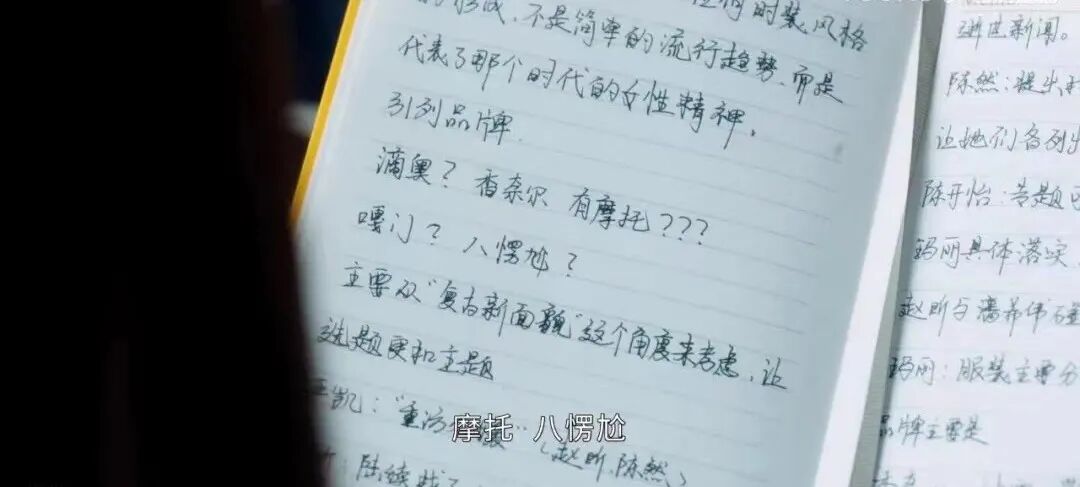 时装风格
的形成,不是简单的流行趋势,而是
代表了那个时代的女性精神,
引列品牌.
滴奥? 香奈尔 有摩托???
嘎门? 八愣尬?
主要从"复古新面貌"这个角度来考虑,让
选题更和主题
王凯:"重访
(赵昕,陈然)
陆续
进进新闻。
陈然:提出
让她们各列出
陈开怡:专题
玛丽具体落实
赵昕与潘希伟
玛丽:服装主要分
品牌主要是
摩托 八愣尬